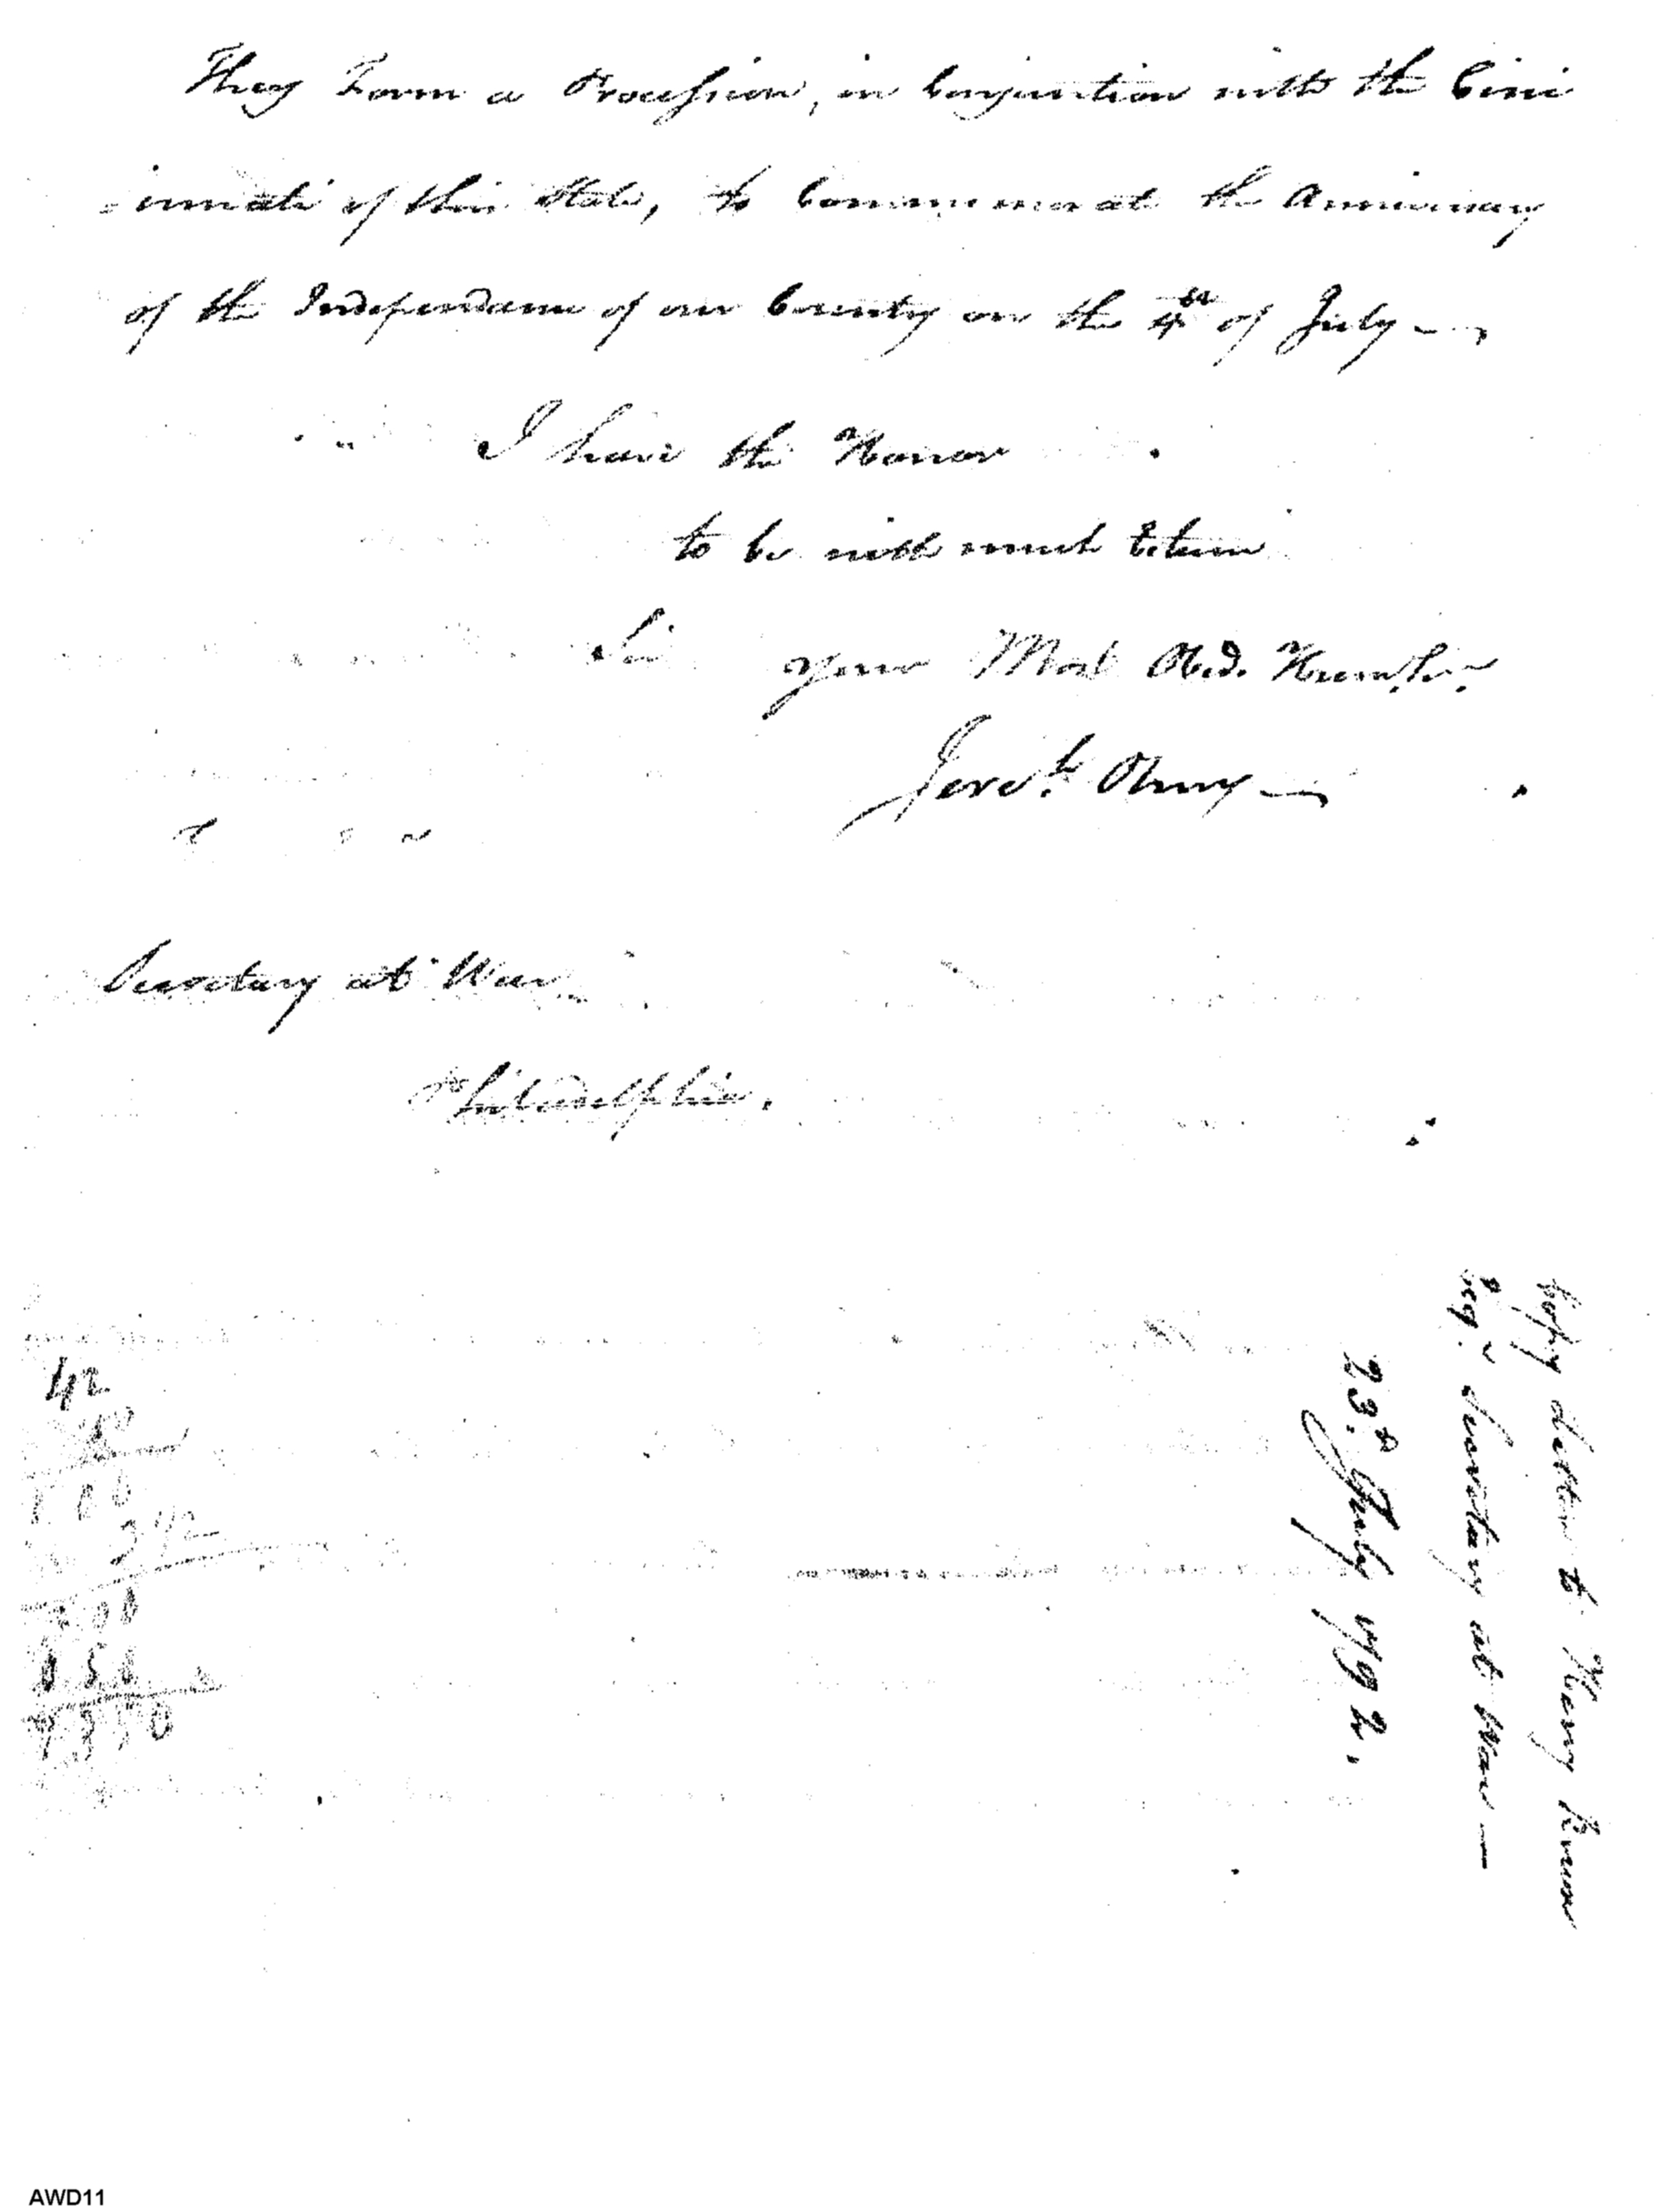 They Form a Procession, in Conjunction with the Cinci
=innati of this State, to Commemorate the Anniversary
of the Independance of our Country on the 4th of July —
I have the Honor
to be with much Esteem
Sir your Most Obed. Hum. Ser.
Jereh. Olney —
Secretary at War
Philadelphia.
Copy Letter to Henry Knox
Esqr. Secretary at War —
23d. July 1792.
42
342
AWD11